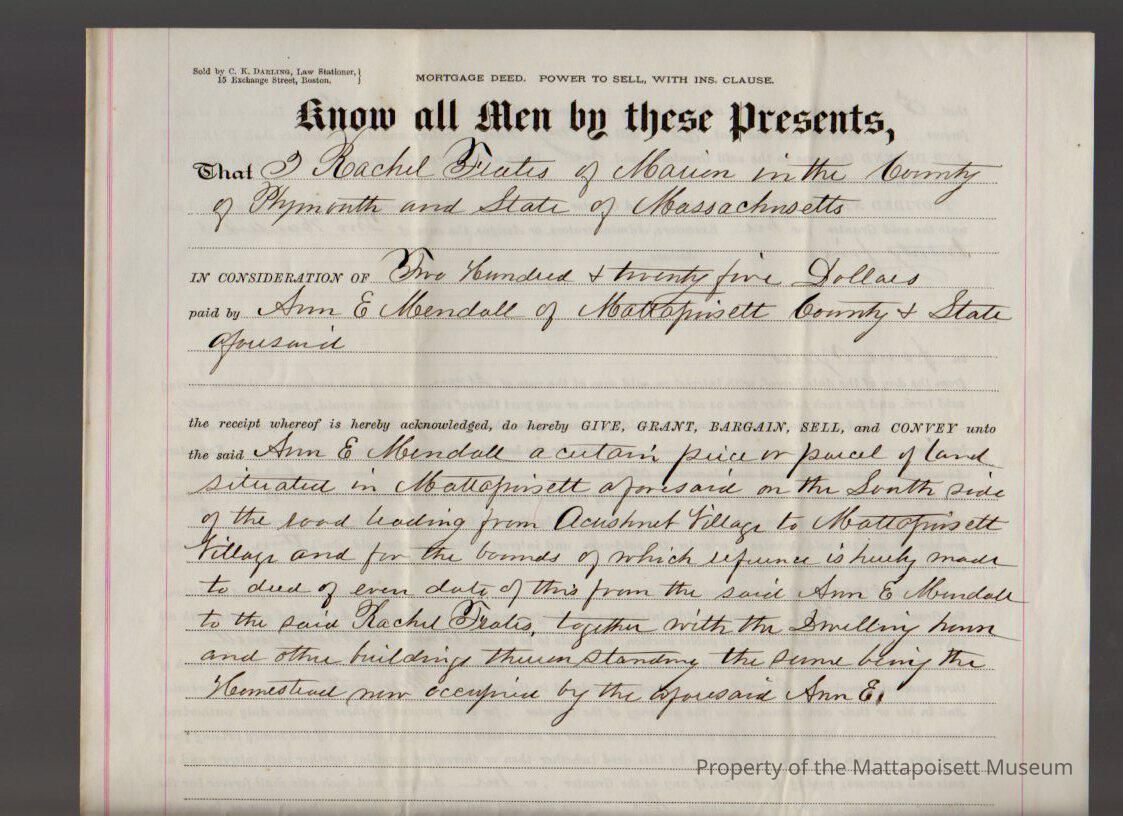 Sold by C. K. DARLING, Law Stationer,}
15 Exchange Street, Boston.
MORTGAGE DEED. POWER TO SELL, WITH INS. CLAUSE.
Know all Men by these Presents,
That I Rachel Frates of Marion in the County
of Plymouth and State of Massachusetts
IN CONSIDERATION OF Two Hundred & twenty five Dollars
paid by Ann E Mendall of Mattapoisett County & State
aforesaid
the receipt whereof is hereby acknowledged, do hereby GIVE, GRANT, BARGAIN, SELL, and CONVEY unto
the said Ann E Mendall a certain piece or parcel of land
situated in Mattapoisett aforesaid on the South side
of the road leading from Acushnet Village to Mattapoisett
Village and for the bounds of which refrence is hereby made
to deed of even date of this from the said Ann E Mendall
to the said Rachel Frates, together with the Dwelling house
and other buildings thereon standing the same being the
Homestead now occupied by the aforesaid Ann E.
Property of the Mattapoisett Museum